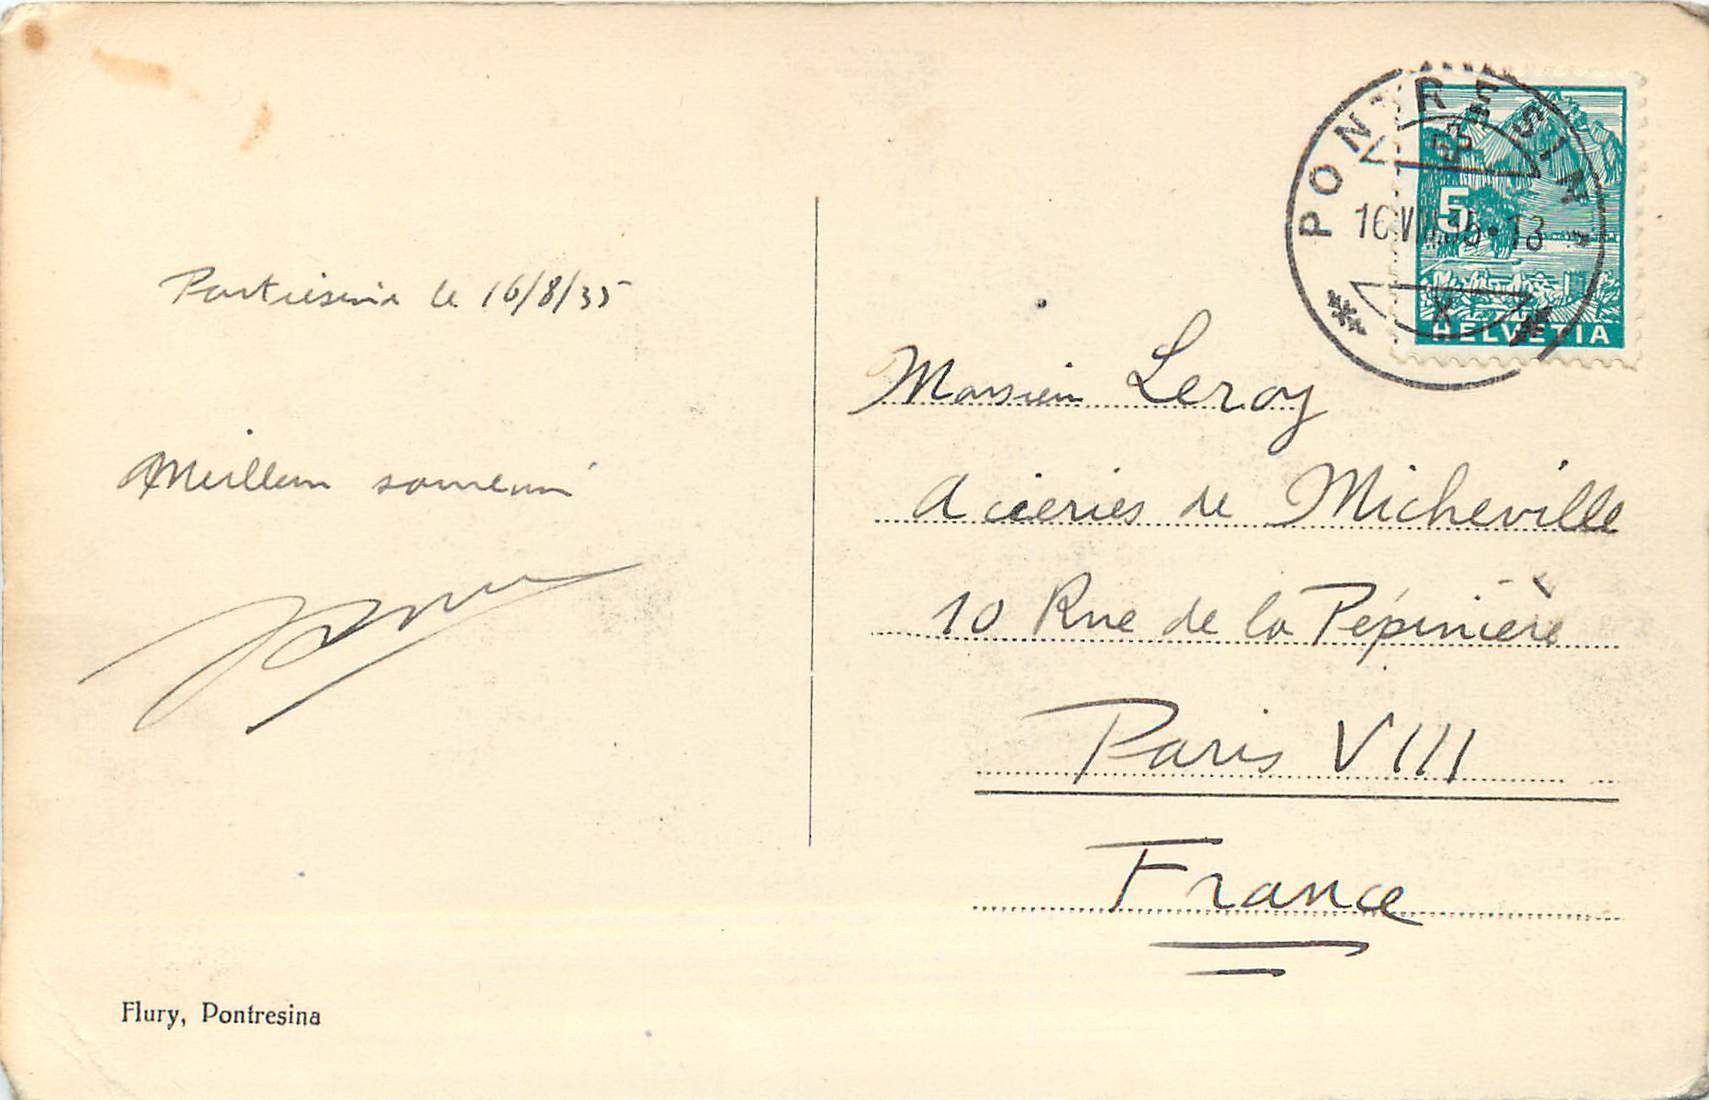 Pontresina le 16/8/35
Meilleur souvenir
PONTRESINA
HELVETIA
5
Monsieur Leroy
Acieries de Micheville
10 Rue de la Pépinière
Paris VIII
France
Flury, Pontresina